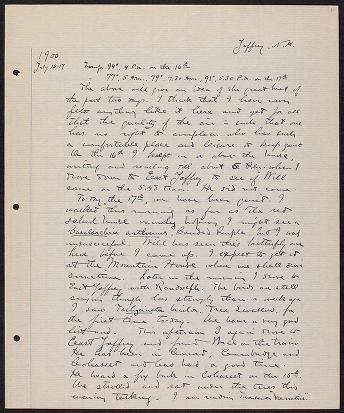 Jaffrey, N.H.
1900
July 16-17 Temp. 94° 4 P.M. on the 16th
77°, 5 A.M., 79° 7.30 A.M., 91°, 5.30 P.M. on the 17th
The above will give an idea of the great heat of
the past two days. I think that I have never
felt anything like it here and yet for all
that the quality of the air is such that one
has no right to complain who has such
a comfortable place and leisure to keep quiet
On the 16th I kept in & about the house,
writing and reading till about 6 P.M. when I
drove down to East Jaffrey to see if Will
came on the 5.43 train. He did not come.
To-day the 17th, we have been quiet. I
walked this morning as far as the red
school house hoping I might see a
Basilarchia arthemis, Banded Purple, but I was
unsuccessful. Will has seen this butterfly
here before I came up. I expect to get it
at the Mountain House when we shall
sometime. Later in the morning I drove to
East Jaffrey with Randolph. The birds are still
singing though less strongly than a week ago
I saw Tachycineta bicolor, Tree Swallow, for
the first time today. We have a very good
list now. This afternoon I again drove to
East Jaffrey and found Will on the train
He has been in Concord, Cambridge and
Cohasset and has had a good time.
He heard a in Cohasset on the 15th.
We strolled and sat under the trees this
evening talking. I am